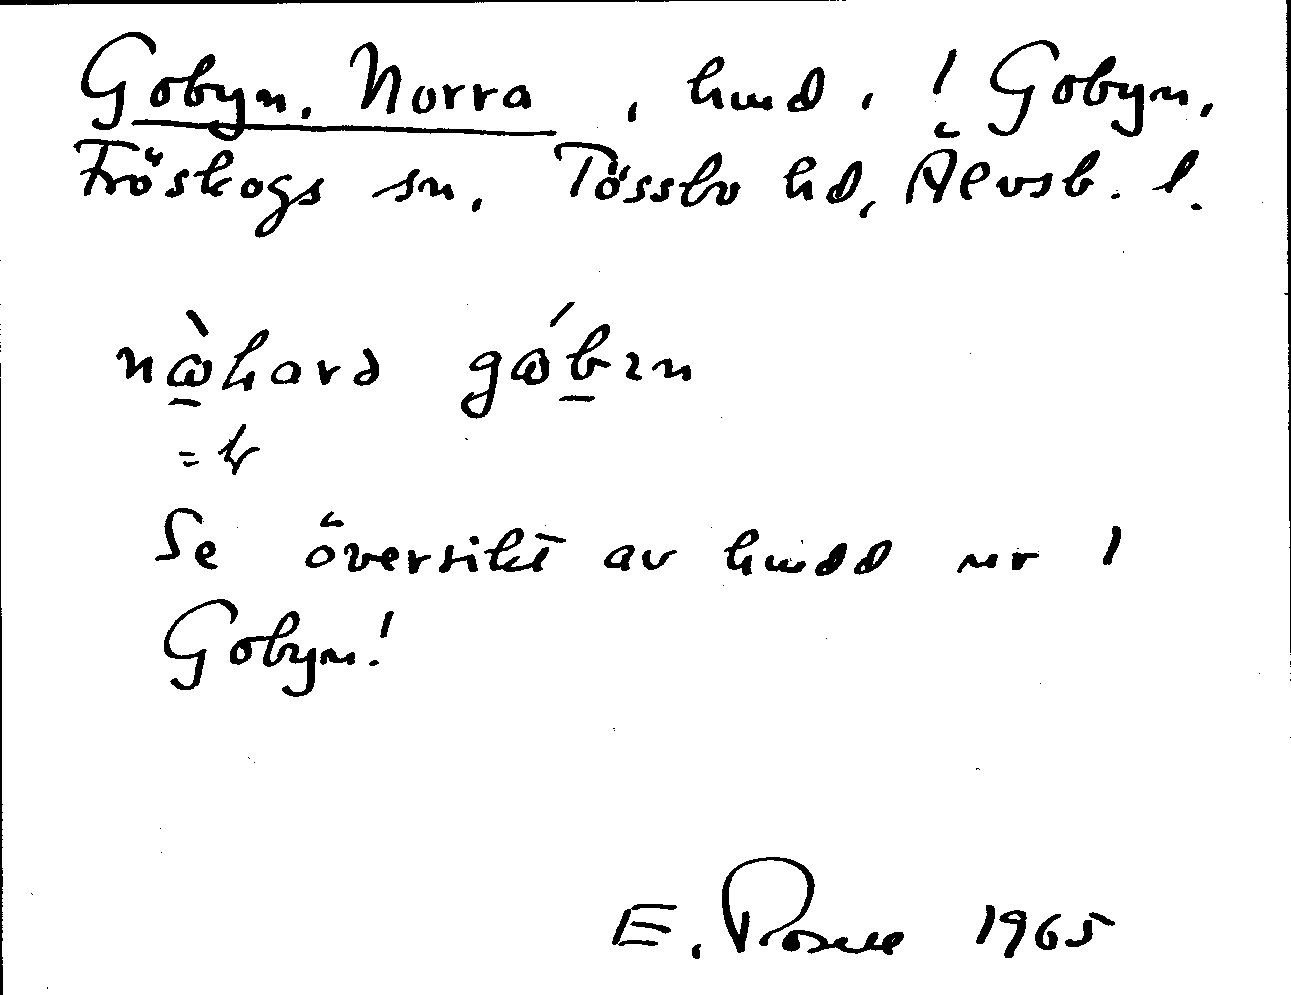 Gobyn, Norra, hmd, 1 Gobyn,
Fröskogs sn, Tössbo hd, Älvsb. l.
Se översikt av hmdd ur 1
Gobyn!
E. 1965